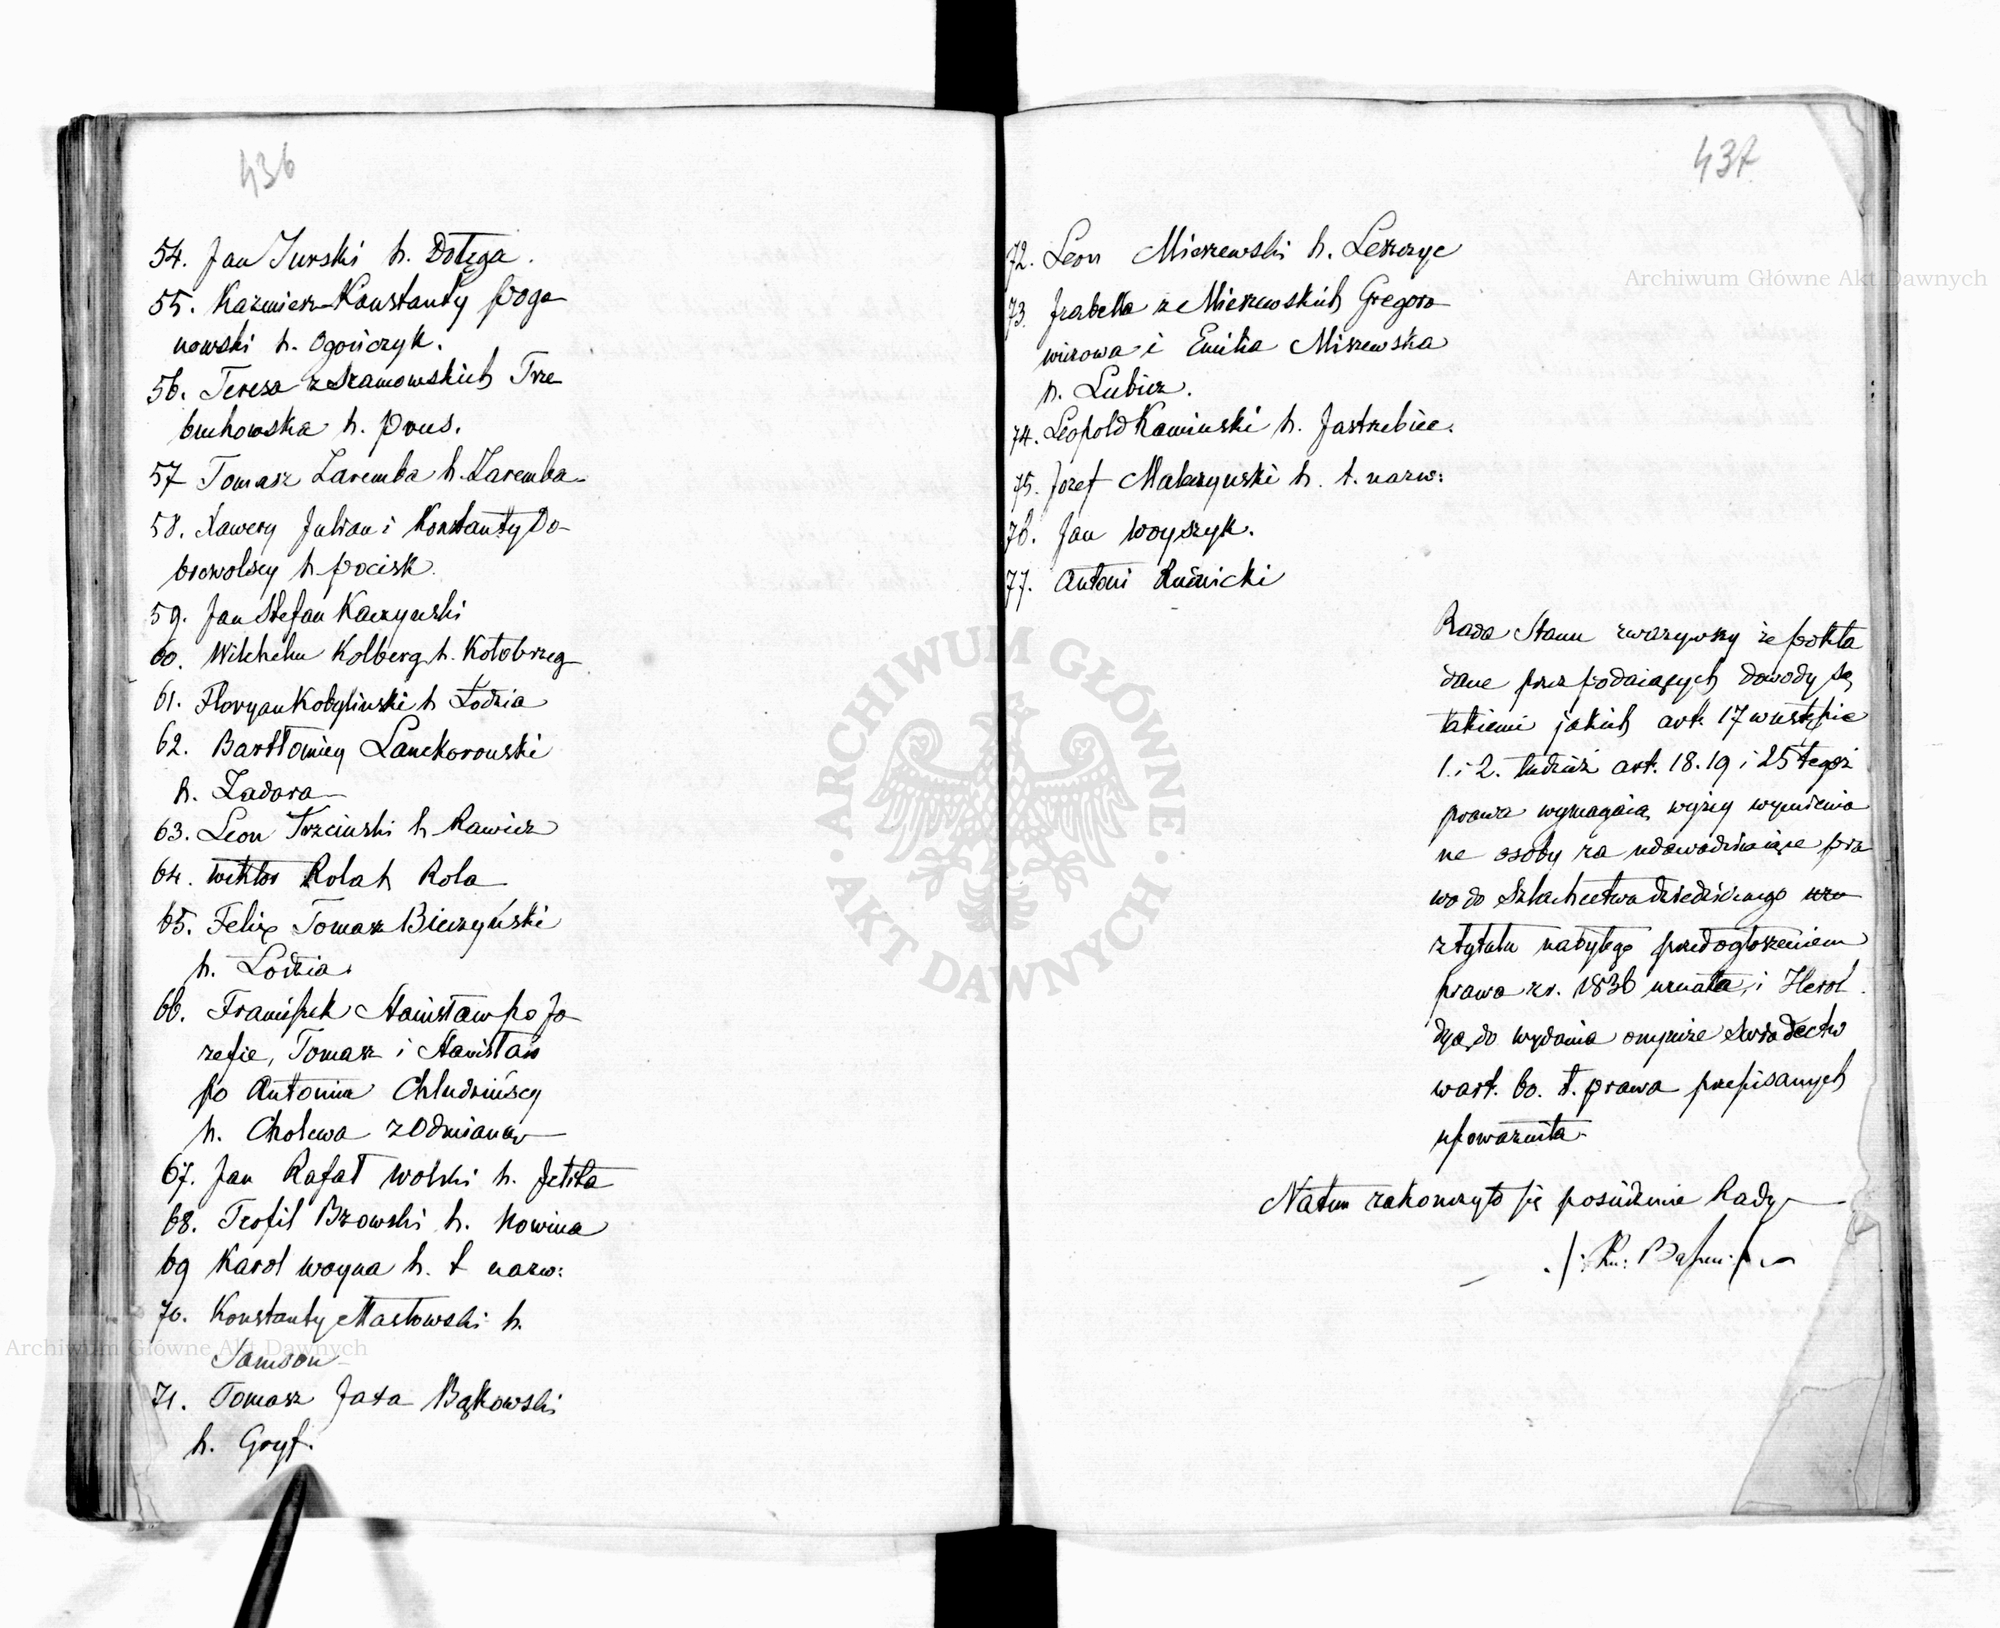 436
54. Jan Jurski h. Dołęga.
55. Kazimierz Konstanty Poga
nowski h. Ogończyk.
56. Teresa z Szamowskich Trze
buchowska h. Prus.
57 Tomasz Zaremba h. Zaremba
58. Xawery Julian i Konstanty Do-
browolscy h. Pocisk.
59. Jan Stefan Kaczyński
60. Wilchelm Kolberg h. Kołobrzeg
61. Floryan Kobyliński h Łodzia
62. Bartłomiey Lanckoroński
h. Zadora
63. Leon Trzciński h. Rawicz
64. Wiktor Rola h Rola
65. Felix Tomasz Bieczyński
h. Lodzia.
66. Franciszek Stanisław po Jo
zefie, Tomasz i Stanisław
po Antonim Chludzińscy
h. Cholewa z Odmianą
67. Jan Rafał Wolski h. Jelita
68. Teofil Bzowski h. Nowina
69 Karol Woyna h. t. nazw:
70. Konstanty Masłowski h.
Samson
71. Tomasz Jaxa Bąkowski
h. Gryf.
437
72. Leon Miszewski h. Leszczyc
73. Izabella z Miszewskich Gregoro
wiczowa i Emilia Miszewska
h. Lubicz.
74. Leopold Kaminski h. Jastrzebiec.
75. Jozef Malczynski h. t. nazw:
76. Jan Woyszyk.
77. Antoni Ruśnicki
Rada Stanu zwazywszy że pokła
dane przez podaiących dowody są
takiemi jakich art. 17 w ustępie
1. i 2. tudzież art. 18. 19 i 25 tegoż
prawa wymagaią, wyżey wymienio
ne osoby za udowadniaiące pra
wo do Szlachectwa dziedzicznego
z tytułu nabytego przed ogłoszeniem
prawa z r. 1836 uznała, i Herol
dyą do wydania onymże Swiadectw
w art. 60. t. prawa przepisanych
upoważniła.
Na tem zakonczyło się posiedzenie Rady
Archiwum Główne Akt Dawnych
Archiwum Główne Akt Dawnych
ARCHIWUM GŁÓWNE
AKT DAWNYCH